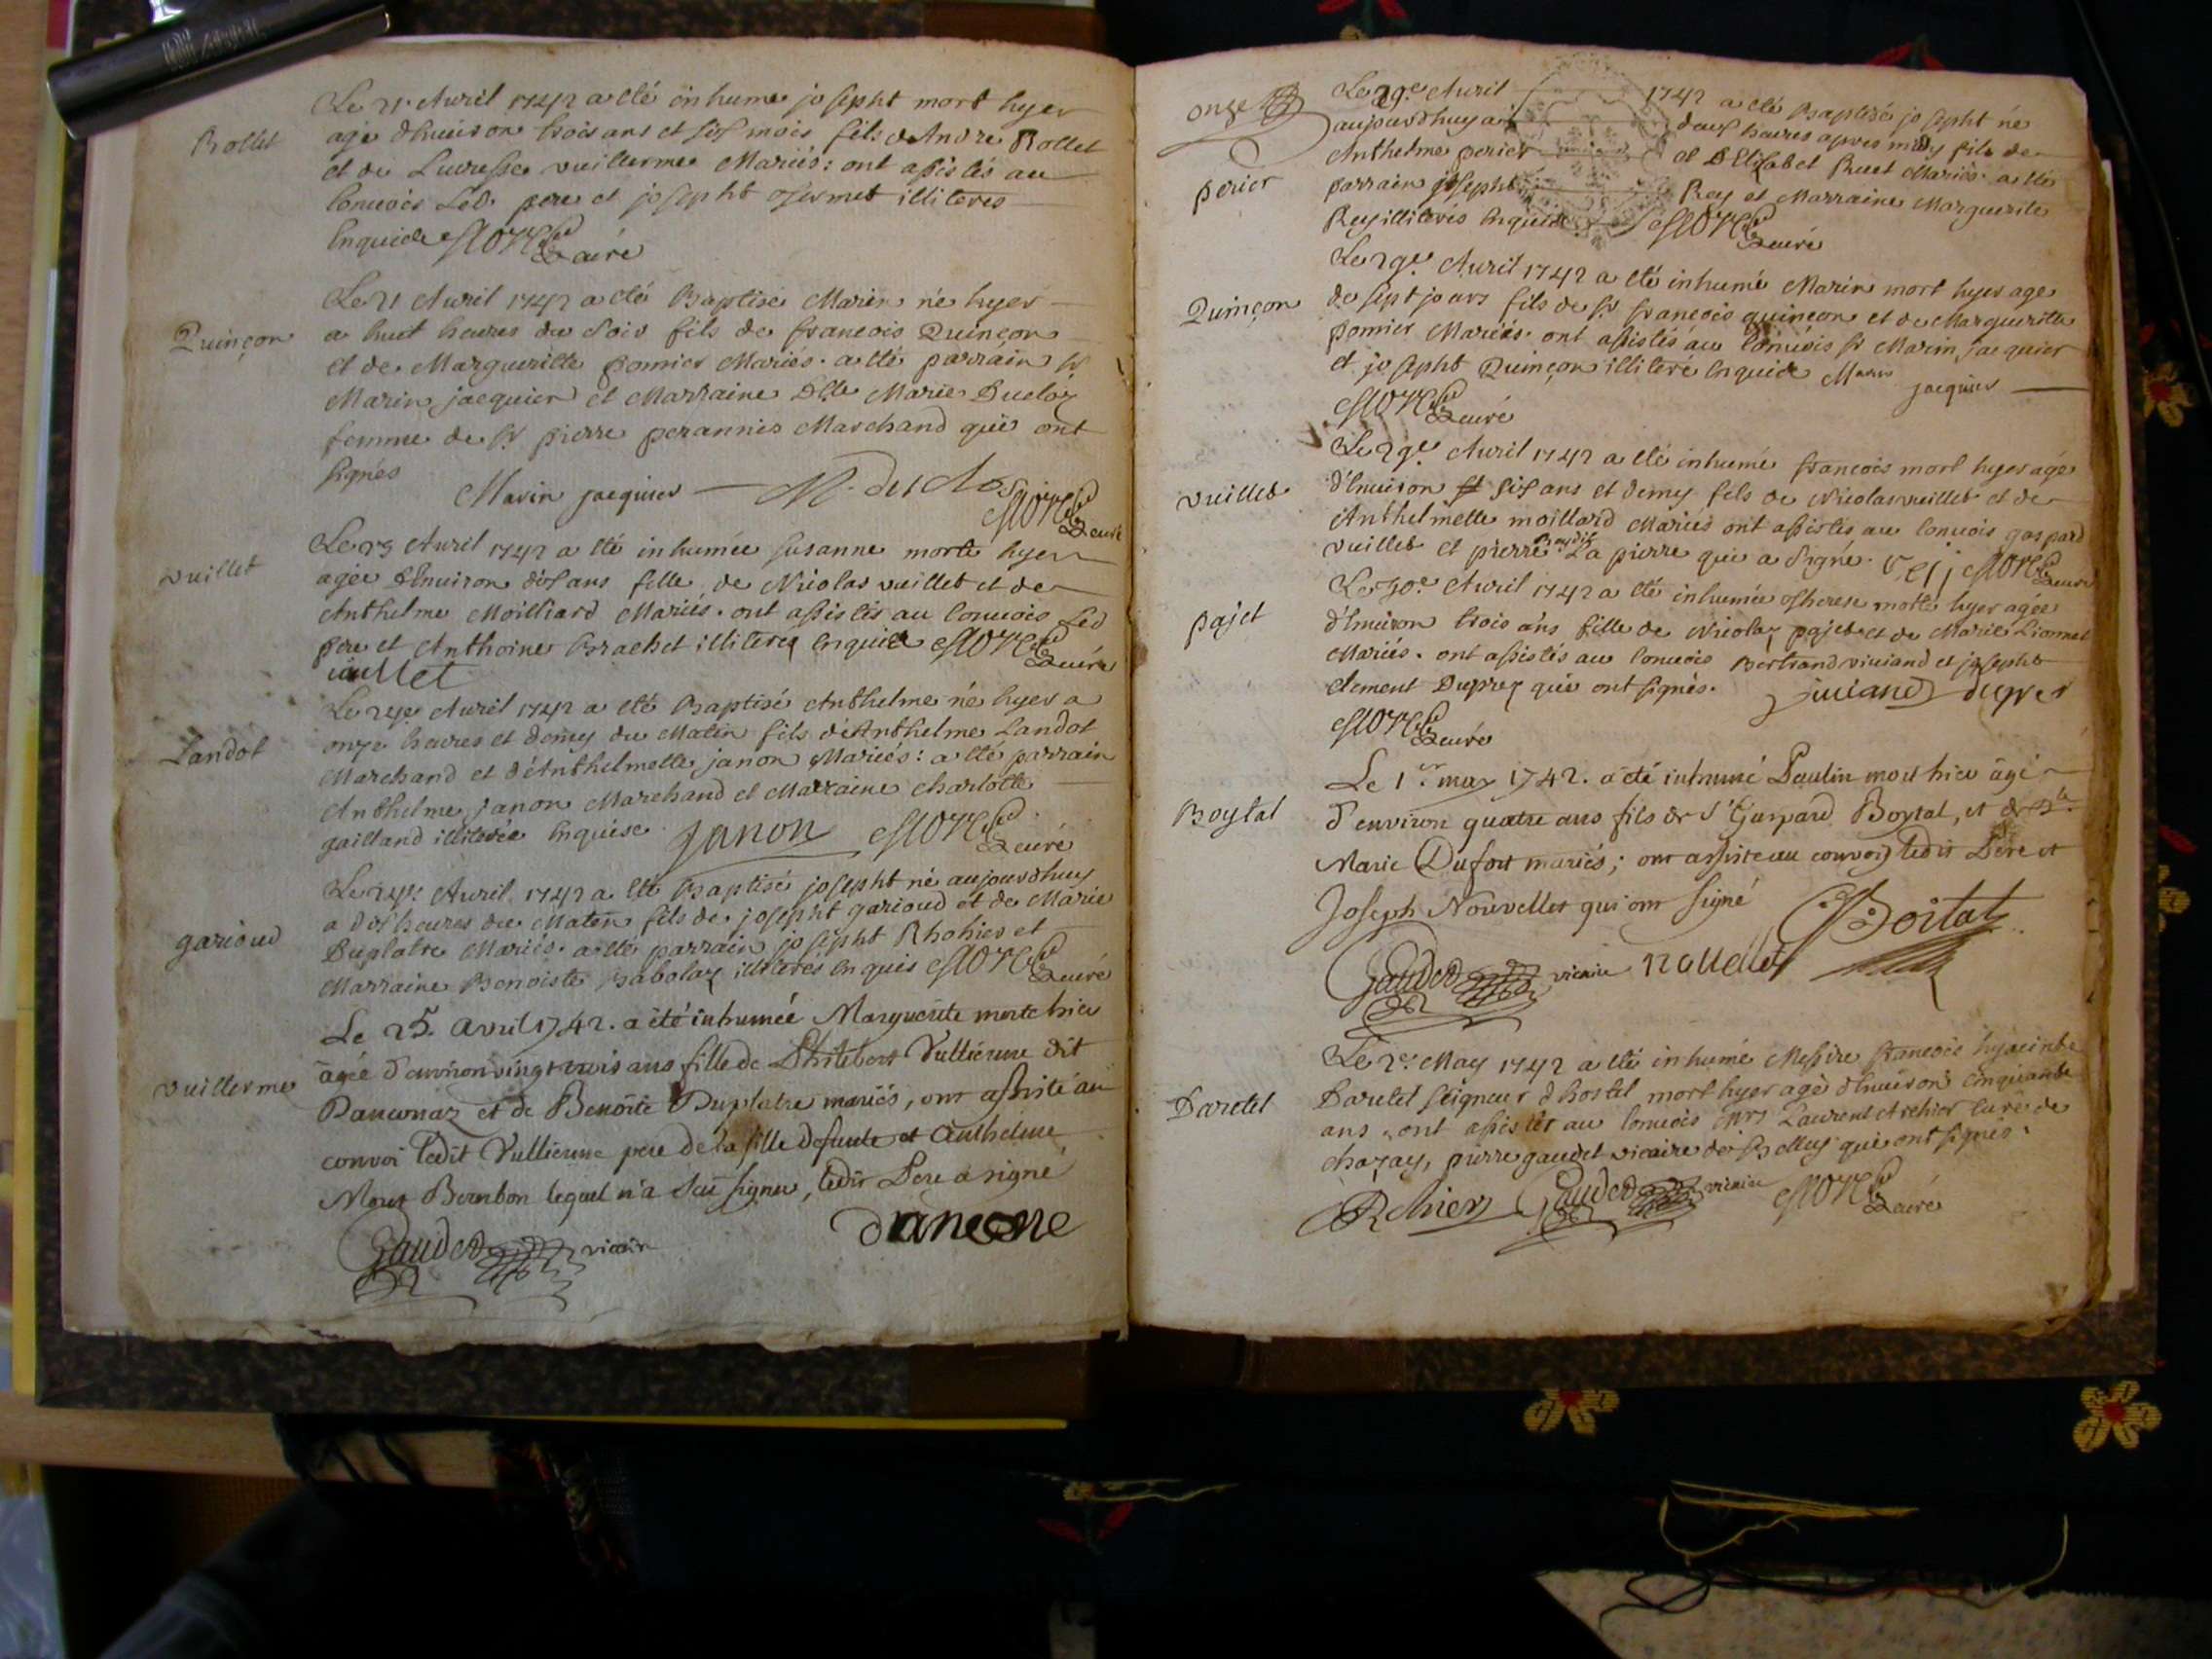 Rollet
Le 21 Avril 1742 a eté inhumé josepht mort hyer
agé dhuiron trois ans et six mois fils dAndre Rollet
et de Lucresse vuillermee Mariés: ont assistés au
convois led. pere et josepht illiteres
Enquide curé
Quinçon
Le 21 Avril 1742 a eté Baptisé Marin né hyer
a huit heures du soir fils de francois Quinçon
et de Margueritte pomier Mariés. a eté parrain Sr
Marin jacquier et Marraine Dlle Marie Ducloz
femme de Sr pierre perannies Marchand qui ont
signés Marin jacquier M. duclos
curé
vuillet
Le 23 Avril 1742 a eté inhumée susanne morte hyer
agée denuiron dix ans fille de Nicolas vuillet et de
Anthelme Moilliard Mariés. ont assistés au convois led
pere et Anthoine Brachet illiteres enquide curé
vuillet
Landot
Le 24e Avril 1742 a eté Baptisé Anthelme né hyer a
onze heures et demy du Matin fils d'Anthelme Landot
Marchand et d'Anthelmette janon Mariés: a eté parrain
Anthelme janon Marchand et Marraine charlotte
gailland illiterée enquise janon curé
garioud
Le 24e Avril 1742 a eté Baptisé josepht né aujourdhuy
a dix heures du Maten fils de josepht garioud et de Marie
Duplatre Mariés. a eté parrain josepht Rhohier et
Marraine Benoiste illiterés enquis curé
vuillerme
Le 25. avril 1742. a été inhumée Marguerite morte hier
agée d'environ vingt trois ans fille de Philibert Vullierme dit
et de Benoîte Duplatre mariés, ont assisté au
convoi ledit Vullierme pere de la fille defunte et Anthelme
lequel n'a sçu signer, ledit Pere a signé
Gaudet vicair
onze
perier
Le 29e Avril 1742 a eté Baptisé josepht né
aujourdhuy a deux heures apres midy fils de
Anthelme perier et D'Elizabet Ruet Mariés. a eté
parrain josepht Rey et Marraine Marguerite
Rey illiterés enquis curé
Quinçon
Le 29e Avril 1742 a eté inhumé Marin mort hyer age
de sept jours fils de Sr francois quincon et de Margueritte
pomier Mariés. ont assistés au convois Sr Marin jacquier
et josepht Quinçon illiteré enquide Marin jacquier
curé
vuillet
Le 29e Avril 1742 a eté inhumé francois mort hyer agé
d'Enuiron six ans et demy fils de Nicolas vuillet et de
Anthelmette moillard Mariés ont assistés au convois gaspard
vuillet et pierre Rey dit La pierre qui a signé. Rey curé
pajet
Le 30e Avril 1742 a eté inhumée therese morte hyer agée
d'Enuiron trois ans fille de Nicolaz pajet et de Marie Lionnet
Mariés. ont assistés au convois Bertrand viuiand et josepht
clement Duprez qui ont signés. viuiand duprer
curé
Boytat
Le 1er may 1742. a eté inhumé Paulin mort hier âgé
d'environ quatre ans fils de Sr Gaspard Boytat, et de
Marie Dufort mariés; ont assisté au convoi ledit Pere et
Joseph Nouvellet qui ont signé Boitat
Gaudet vicaire nouellet
Darelel
Le 2e May 1742 a eté inhumé Messire francois hyacinte
Darelel seigneur d hostel mort hyer agé dhuiron cinquante
ans. ont assister au convois Mrs Laurent Archier curé de
chazay, pierre gaudet vicaire de Belley qui ont signés.
Rchier Gaudet vicaire curé